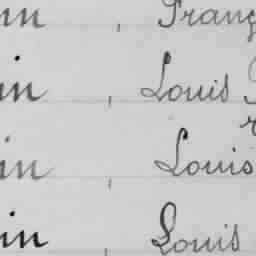 in, Franç
in, Louis
in, Louis
in, Louis